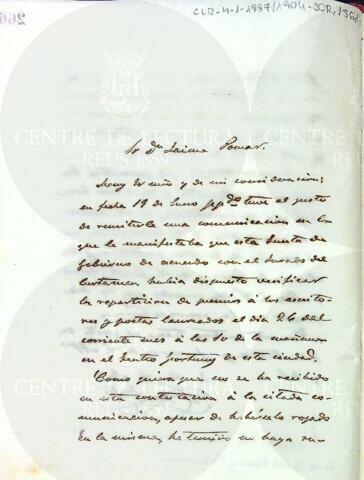 CLR-M-1-1887/1904-JOR,1562
Sr Dn Jaime Pomar.
Muy Sr mio y de mi consideracion:
en fecha 19 de Junio pp.do tuve el gusto
de remitirle una comunicacion en la
que le manifestaba que esta Junta de
Gobierno de acuerdo con el Jurado del
Certamen habia dispuesto verificar
la reparticion de premios á los escrito-
res y poetas laureados el dia 26 del
corriente mes á las 10 de la mañana
en el Teatro Fortuny de esta ciudad.
Como quiera que no se ha recibido
en esta contestacion á la citada co-
municacion, apesar de habérselo rogado
en la misma, he tenido no haya su-
CENTRE DE LECTURA
REUS 1859